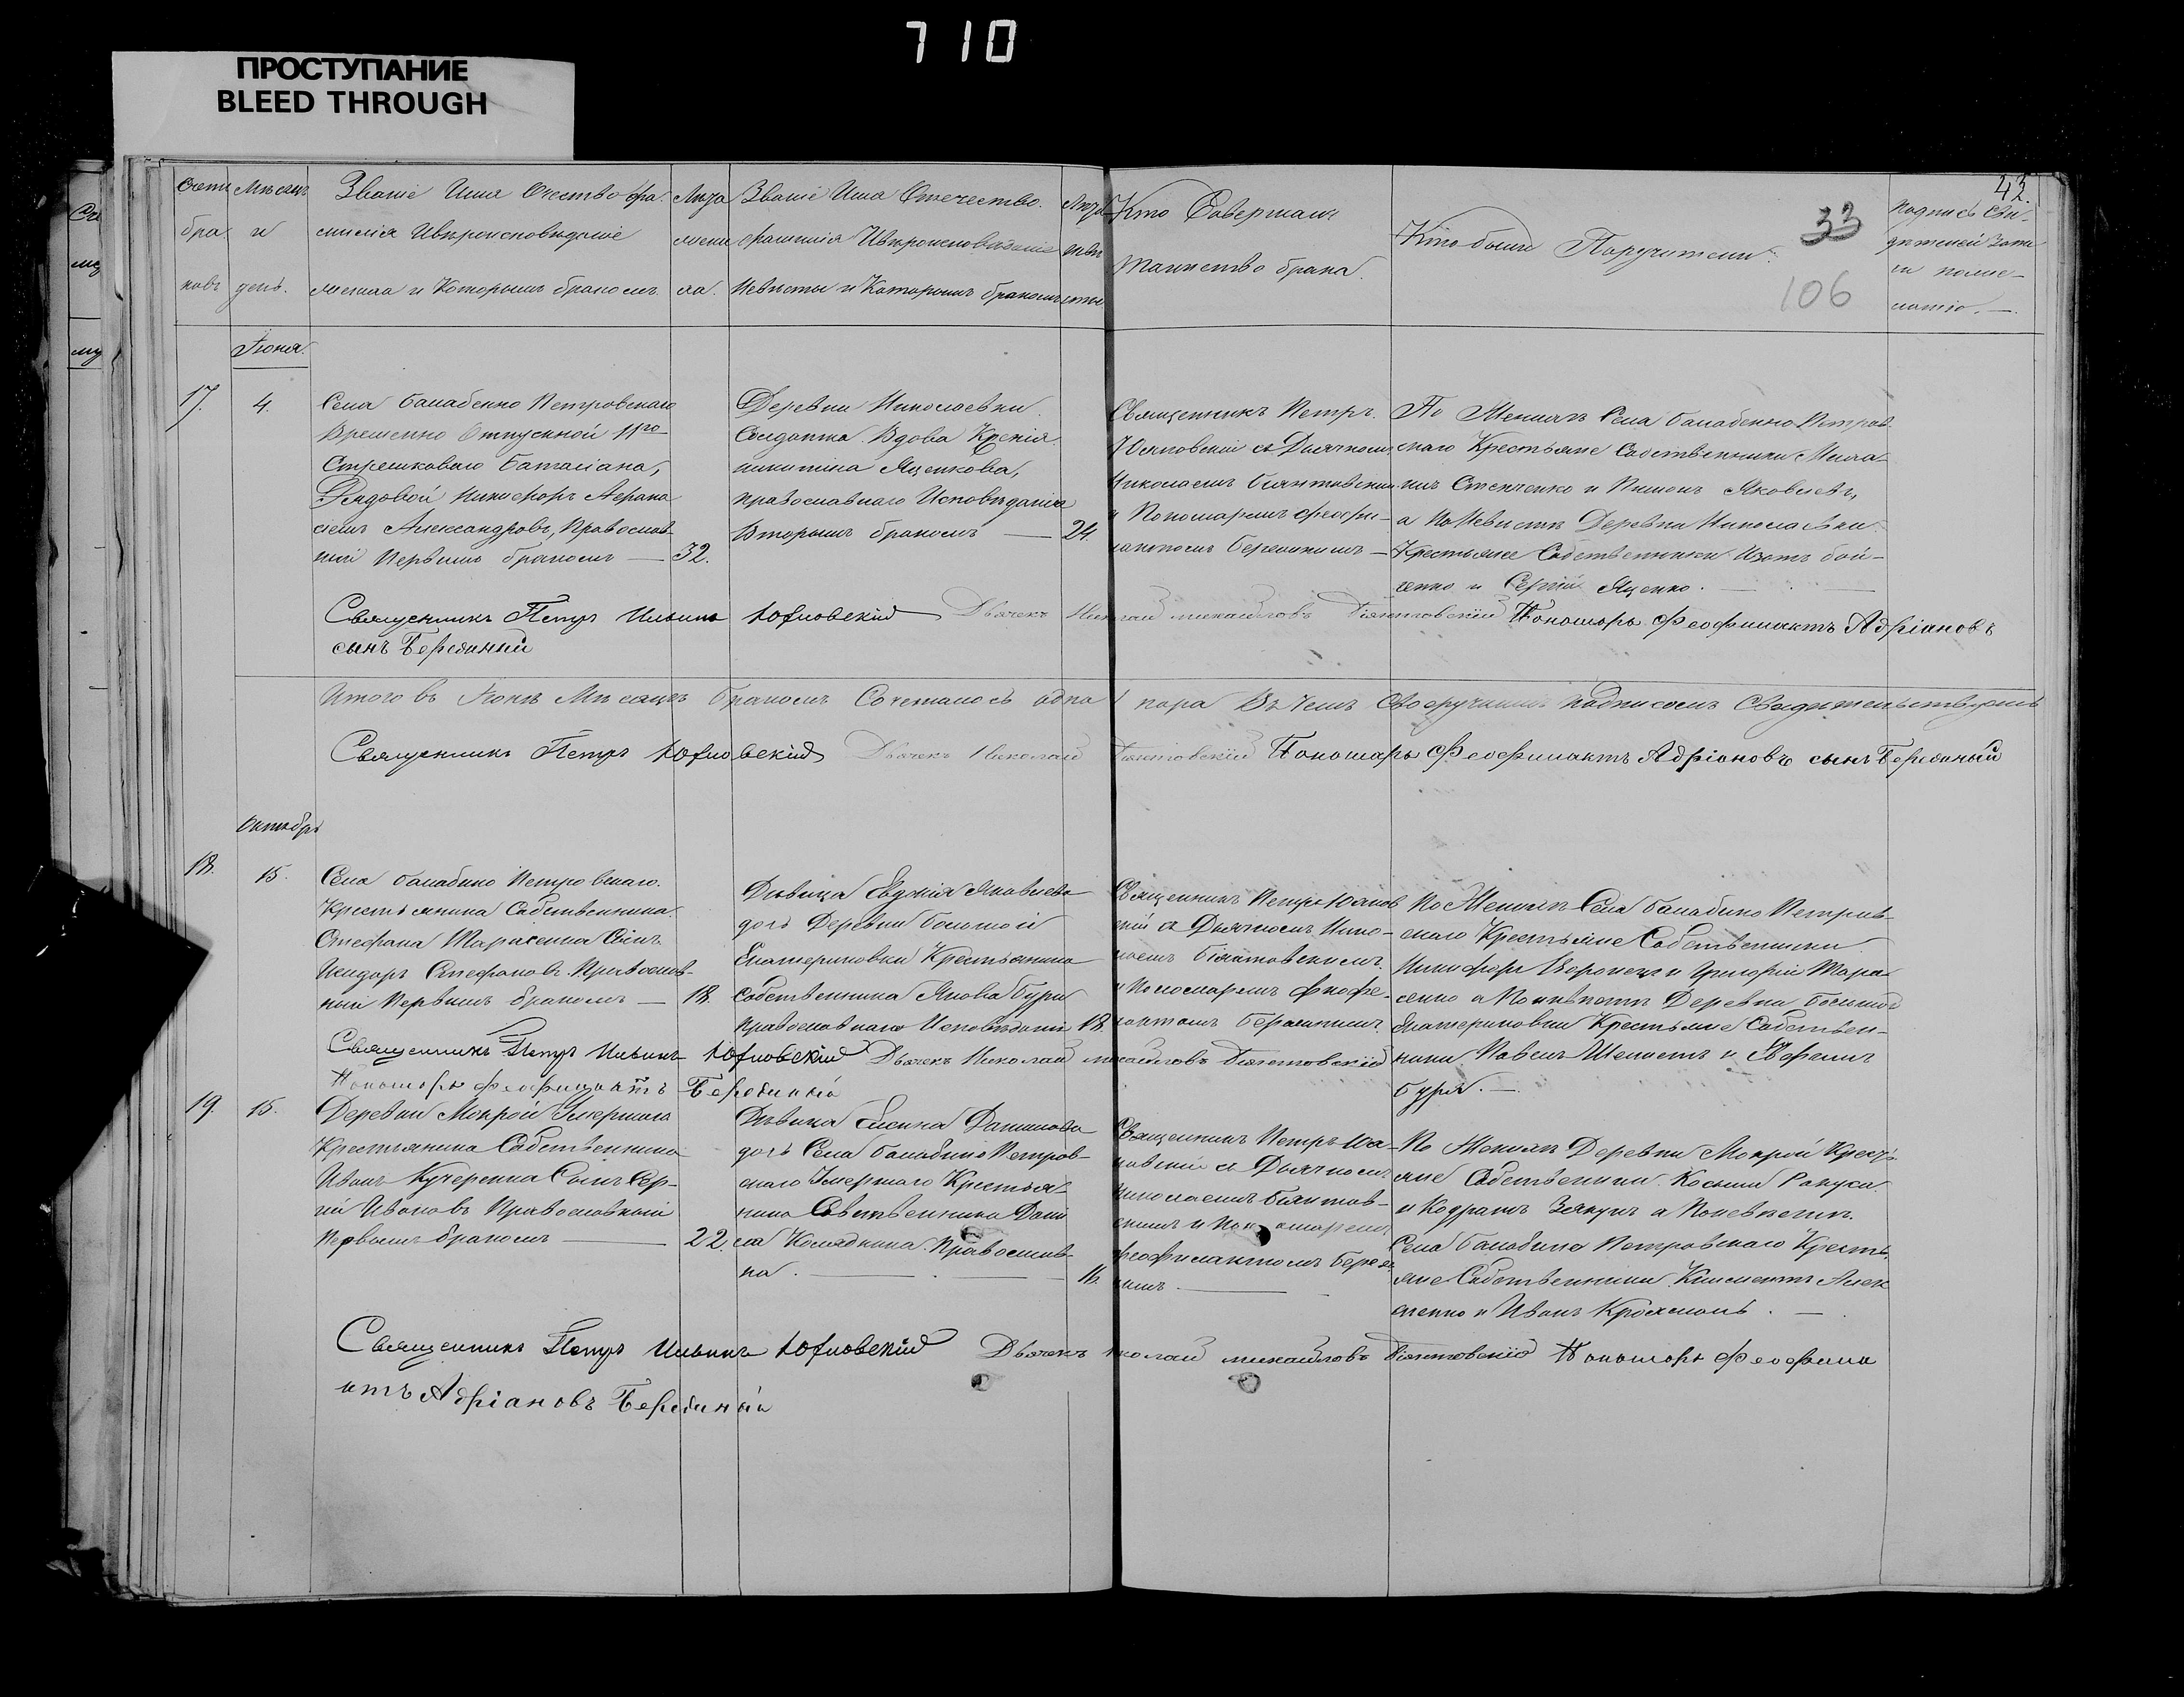 710
ПРОСТУПАНИЕ
BLEED THROUGH
43.
33
106
Счетъ
бра
ковъ
Мѣсяцъ
и
день.
Званіе Имя Отество фа
милія Ивѣроисповѣданіе
жениха и Которымъ бракомъ
Лѣта
жени
ха.
Званіе Имя Отечество.
фамилія Ивѣроисповѣданіе
Невѣсты и Которымъ бракомъ
Лѣта
невѣ
сты
Кто Совершалъ
таинство брака.
Кто были Поручители.
Подпись Сви-
дѣтелей Запи
си
Іюня.
17.
4.
Села Балабино Петровскаго
Временно Отпускной 11го
Стрѣлковаго Баталіана,
Рядовой Никифоръ
Александровъ, Православ
ный Первымъ бракомъ — 32.
Деревни Николаевки
Солдатка Вдова Ксенія
никитина Яценкова,
православнаго Исповѣданія
Вторымъ бракомъ — 24
Священникъ Петръ
Юхновскій съ Дьячкомъ
Николаемъ
и Пономаремъ Феофи-
лактомъ
По Женихѣ Села Балабино Петров
скаго Крестьяне Собственники
Стенченко и Яковлевъ,
а По Невѣстѣ Деревни Николаевки
Крестьяне Собственники Изотъ бой-
ченко и Сергій Яценко. —
Священникъ Петръ Ильинъ Юхновскій Дьячекъ Николай михайловъ Пономарь Феофилактъ Адріановъ
сынъ
Итого въ Іюнѣ Мѣсяцѣ бракомъ Сочеталось одна 1 пара Въ Чемъ Своеручнымъ подписомъ Свидѣтельствуемъ
Священникъ Петръ Юхновскій Дьячекъ Николай Пономарь Феофилактъ Адріановъ сынъ
Октябрь
18.
15.
Села балабино Петровскаго.
Крестьянина Собственника
Стефана Тарасенка Сынъ
Исидоръ Стефановъ Православ-
ный Первымъ бракомъ — 18.
Дѣвица Евдокія Яковлева
дочь Деревни Большой
Екатериновки Крестьянина
Собственника Якова Бури
православнаго Исповѣданія 18.
Священникъ Петръ Юхнов
скій съ Дьячкомъ Нико-
лаемъ
и Пономаремъ Феофи-
лактомъ
По Женихѣ Села балабино Петров-
скаго Крестьяне Собственники
Никифоръ Воронецъ и Григорій Тара
сенко а По невѣстѣ Деревни большой
Екатериновки Крестьяне Собствен-
ники Павелъ и Ефремъ
буря. —
Священникъ Петръ Ильинъ Юхновскій Дьячекъ Николай михайловъ
Пономарь Феофилактъ
19.
15.
Деревни Мокрой Умершаго
Крестьянина Собственника
Ивана Кучеренка Сынъ Сер-
гій Ивановъ Православный
Первымъ бракомъ — 22.
Дѣвица Данилова
дочь Села балабино Петров-
скаго Умершаго Крестья-
нина Собственника Дани
ла Колядкина Православ-
на. — 16.
Священникъ Петръ Юх-
новскій съ Дьячкомъ
Николаемъ
и Пономаремъ
Феофилактомъ
По Женихѣ Деревни Мокрой Кресть
яне Собственники Косьма
и Кодратъ а По невѣстѣ
Села балабино Петровскаго Кресть
яне Собственники Климентъ
и Иванъ Крохмаль. —
Священникъ Петръ Ильинъ Юхновскій Дьячекъ Николай михайловъ Пономарь Феофила
ктъ Адріановъ